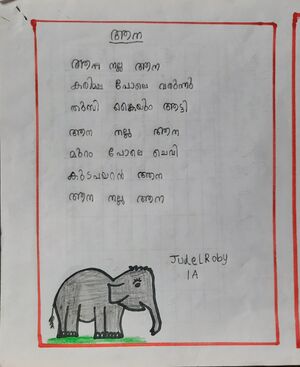 ആന
ആന നല്ല ആന
കരിമല പോലെ വരുന്നു
തുമ്പി കൈയ്യും ആട്ടി
ആന നല്ല ആന
മുറം പോലെ ചെവി
കുടവയറൻ ആന
ആന നല്ല ആന
Jude L Roby
1A